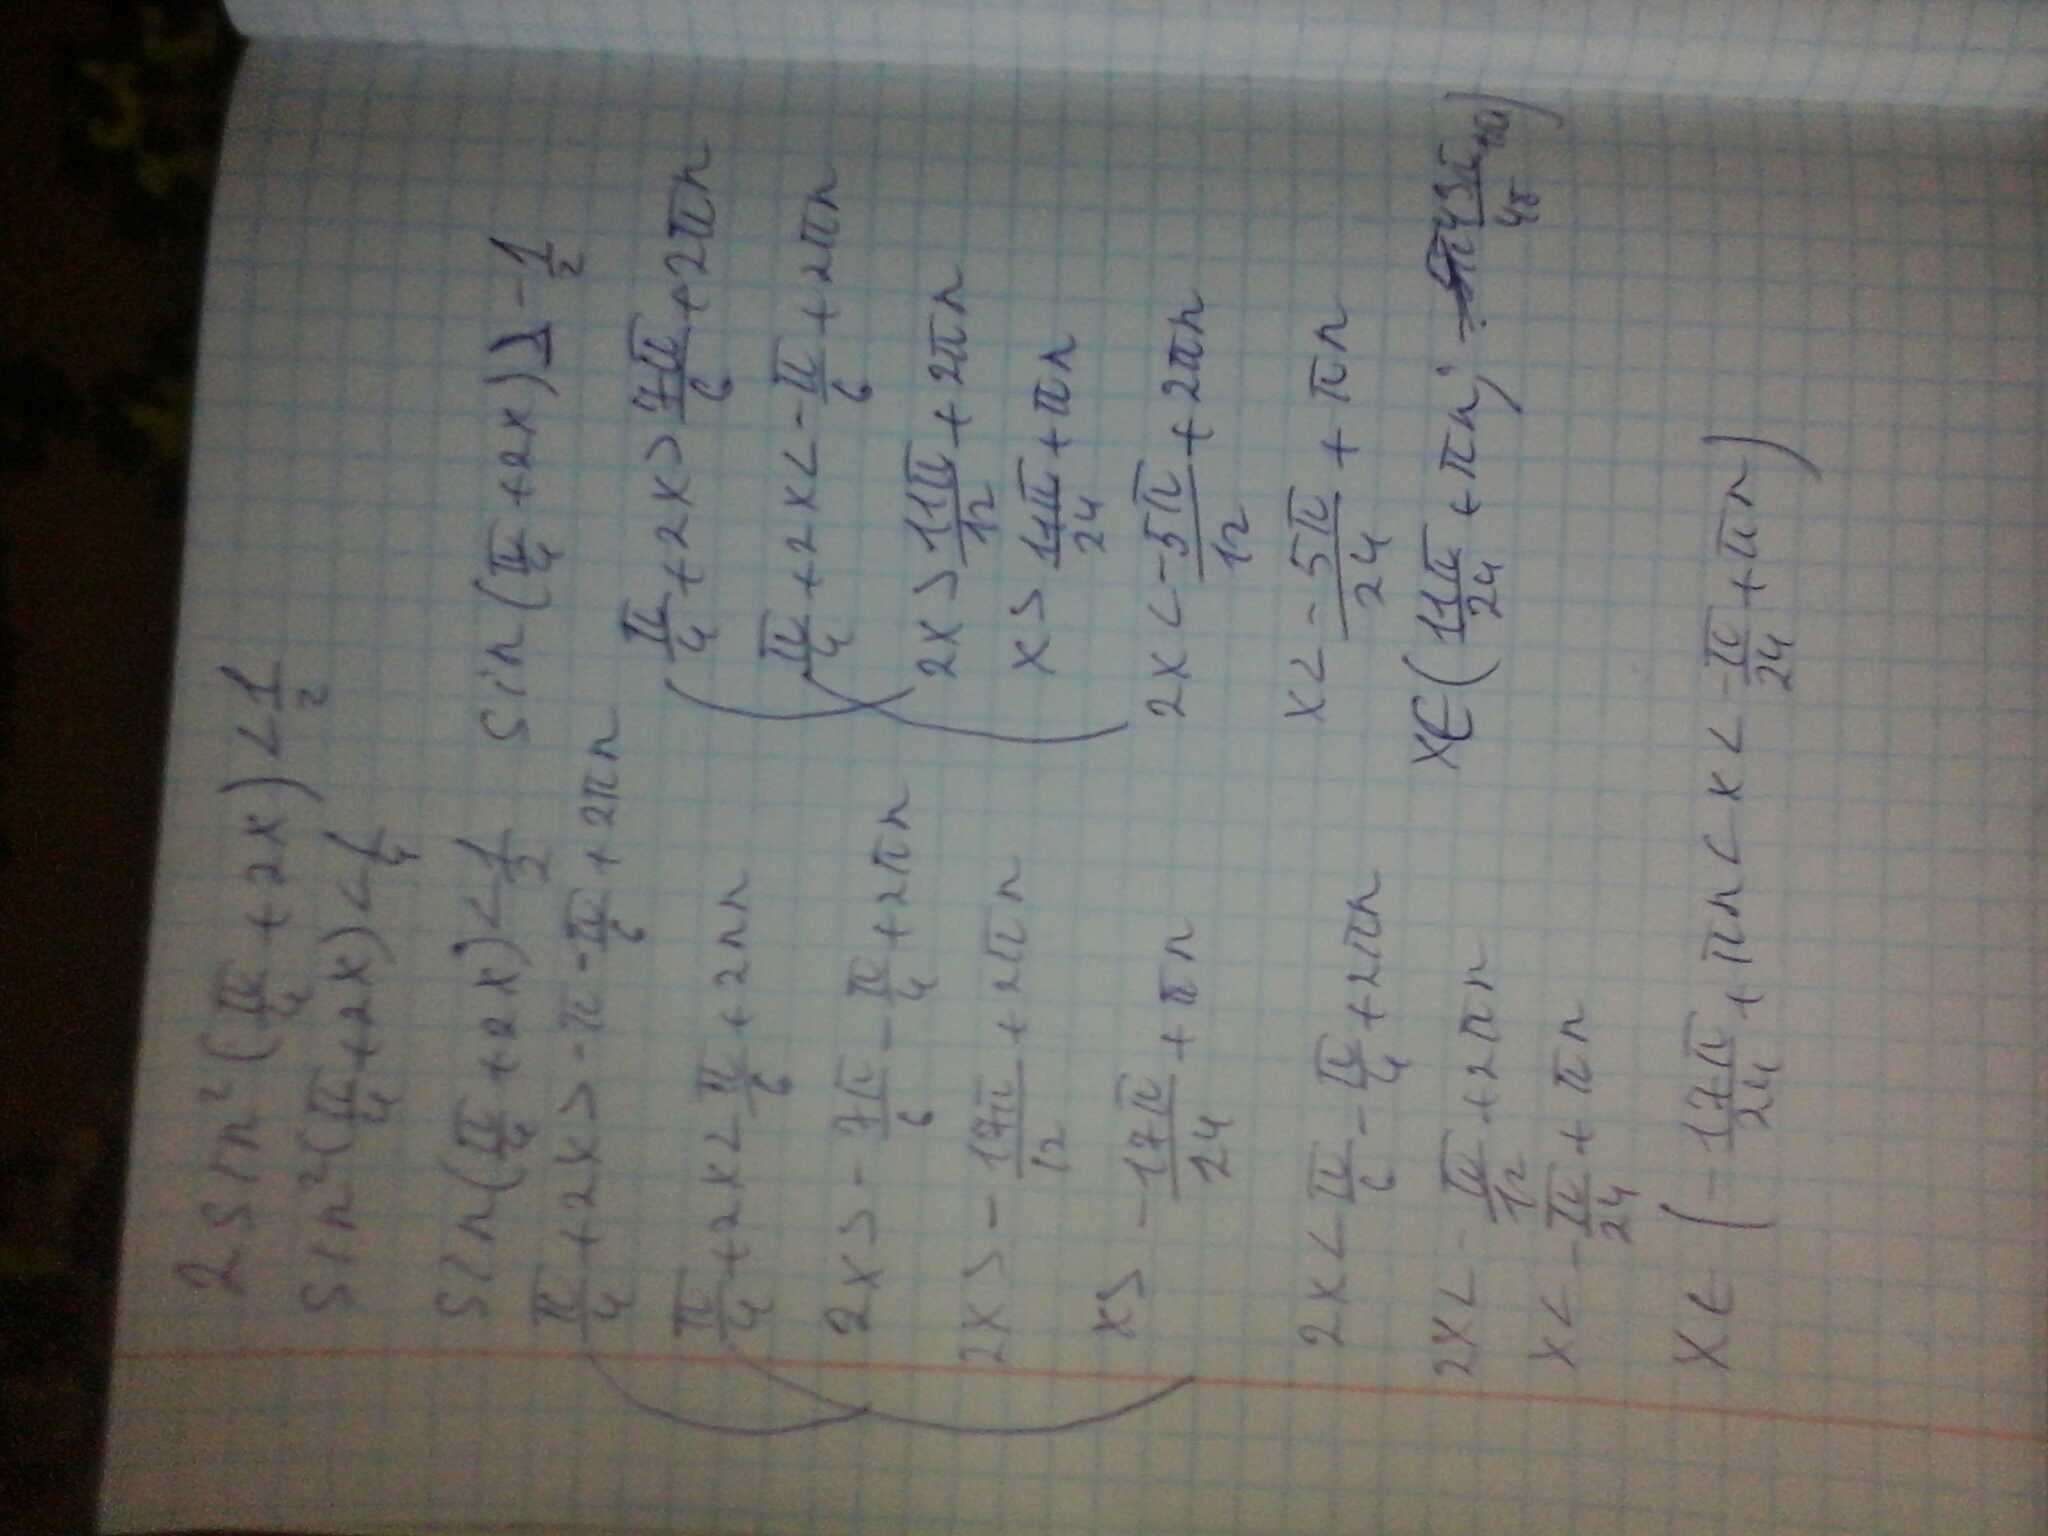 2 sin²(π/4 + 2x) < 1/2
sin²(π/4 + 2x) < 1/4
sin(π/4 + 2x) < 1/2
π/4 + 2x > -π - π/6 + 2πn
π/4 + 2x < π/6 + 2πn
2x > - 7π/6 - π/4 + 2πn
2x > - 17π/12 + 2πn
x > - 17π/24 + πn
2x < π/6 - π/4 + 2πn
2x < - π/12 + 2πn
x < - π/24 + πn
x ∈ (- 17π/24 + πn < x < - π/24 + πn)
sin(π/4 + 2x) > - 1/2
π/4 + 2x > 7π/6 + 2πn
π/4 + 2x < - π/6 + 2πn
2x > 11π/12 + 2πn
x > 11π/24 + πn
2x < - 5π/12 + 2πn
x < - 5π/24 + πn
x ∈ (11π/24 + πn; 43π/48